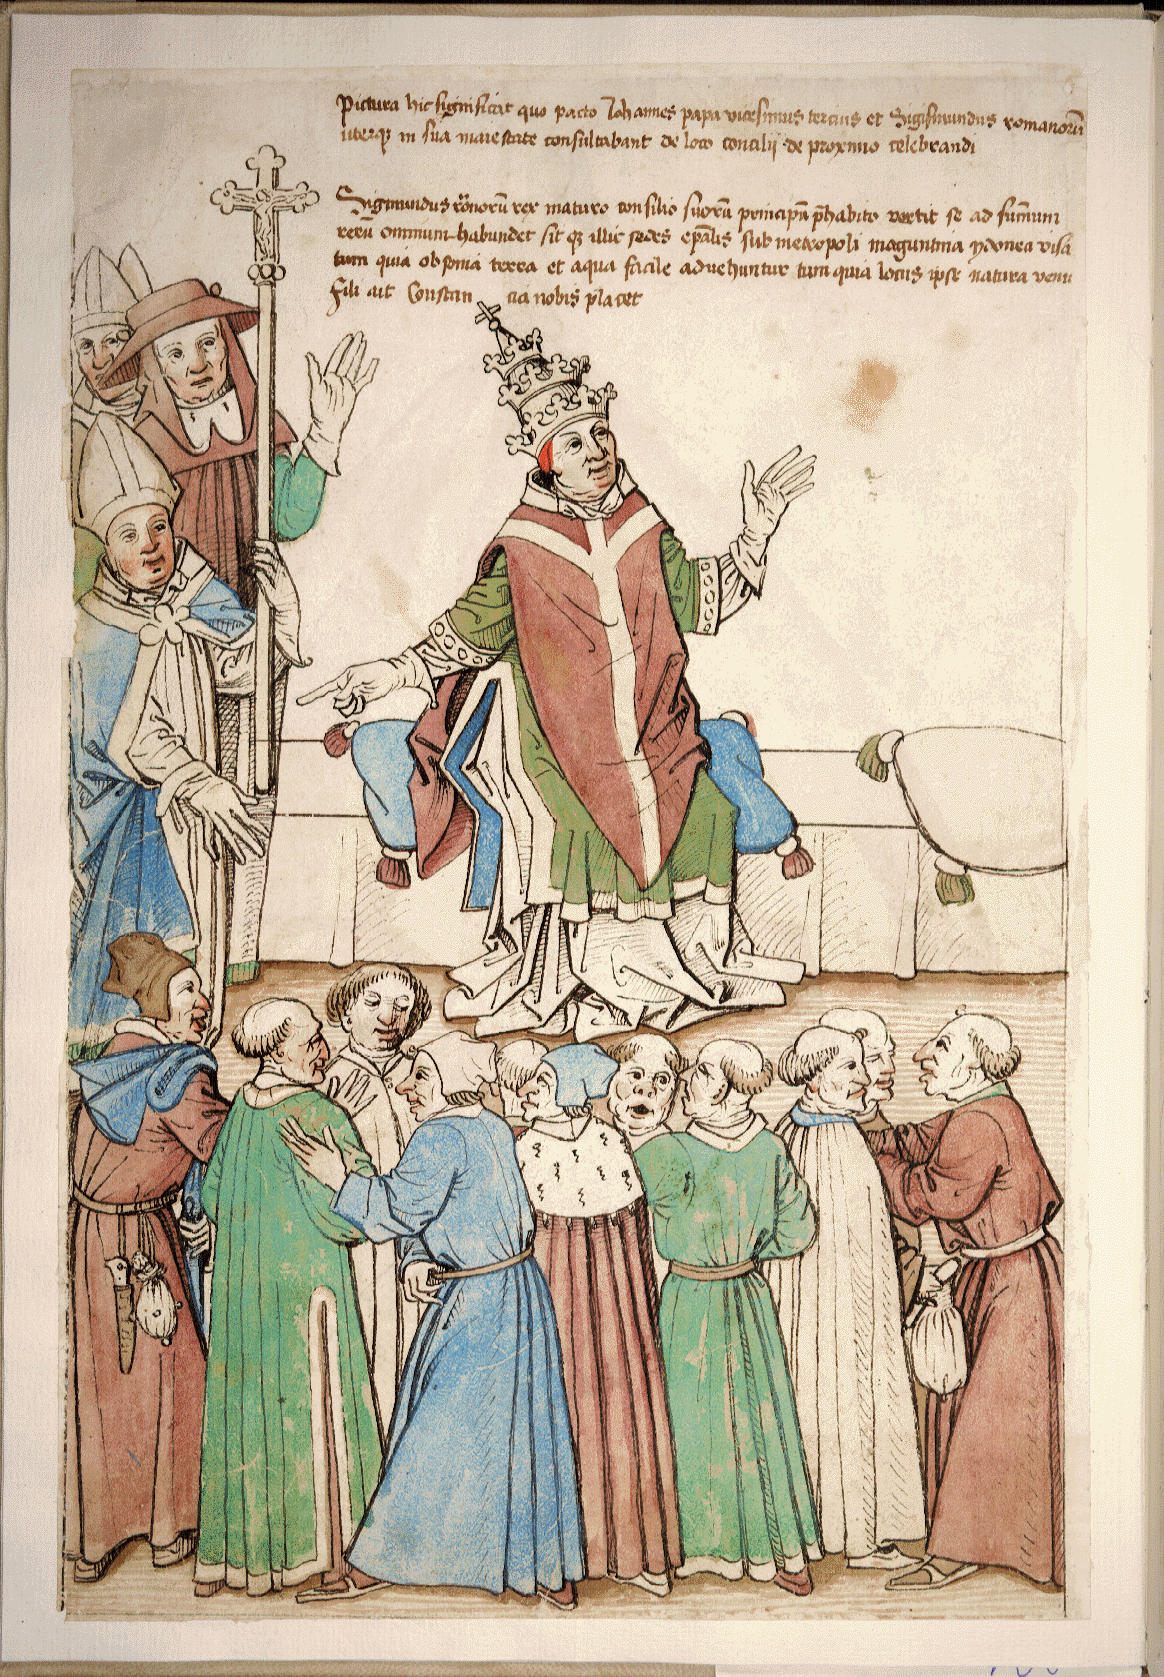 Pictura hic significat quo pacto Iohannes papa vicesimus tercius et Sigismundus romanorũ
uterqȝ in sua maiestate consultabant de loco concilij de proximo celebrandi
Sigmundus rõnorũ rex maturo consilio suorũ principũ p̃habito vertit se ad sum̃um
rerũ omnium habundet sit qȝ illic sedes ep̃alis sub metropoli maguntina ydonea visa
tum quia obsonia terra et aqua facile aduehuntur tum quia locus ipse natura
ait Constan cia nobis placet